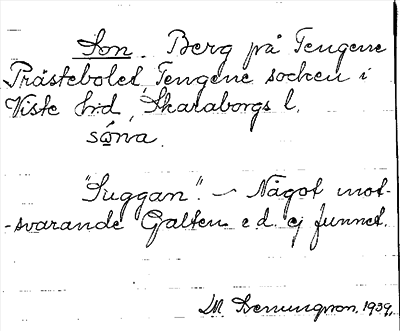 Son. Berg på Tengene
Prästebolet, Tengene socken i
Viste hrd, Skaraborgs l.
sω̄́na.
"Suggan". – Något mot-
-svarande Galten e.d. ej funnet.
M. Benningson. 1939.